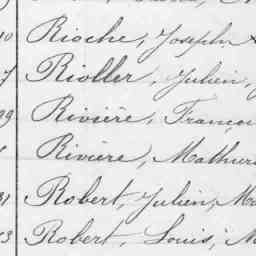 10 Rioche, Joseph
7 Rioller, Julien, J
99 Rivière, Françoi
Rivière, Mathuri
31 Robert, Julien, Ma
13 Robert, Louis, M